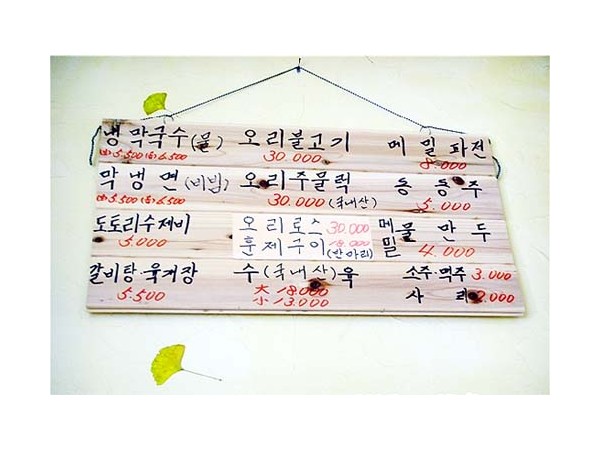 냉 막국수(물) 오리불고기 메밀파전
(보)5.500(특)6.500 30.000 8.000
막 냉 면(비빔) 오리주물럭 동 동 주
(보)5.500(특)6.500 30.000(국내산) 5.000
도토리수제비 오리로스 30.000 메밀 물 만 두
5.000 훈제구이 18.000 (반마리) 4.000
갈비탕 육개장 수(국내산)육 소주·맥주 3.000
5.500 大 18.000 사 리 2.000
小 13.000